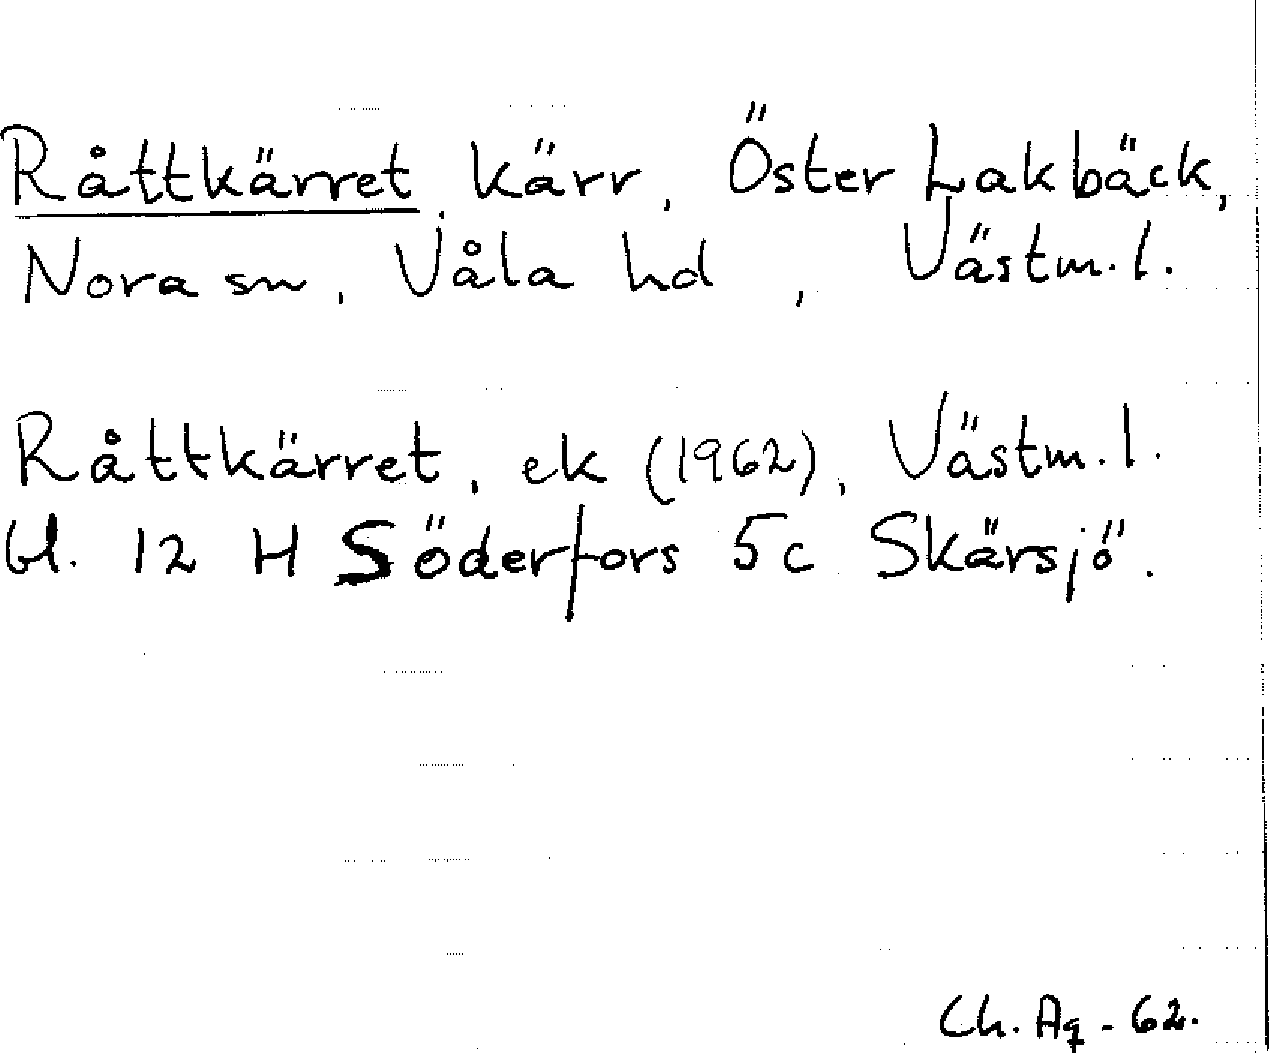 Råttkärret, kärr, Öster Lakbäck,
Nora sn, Våla hd, Västm. l.
Råttkärret, ek (1962), Västm. l.
bl. 12 H Söderfors 5c Skärsjö.
Ch. Aq - 62.